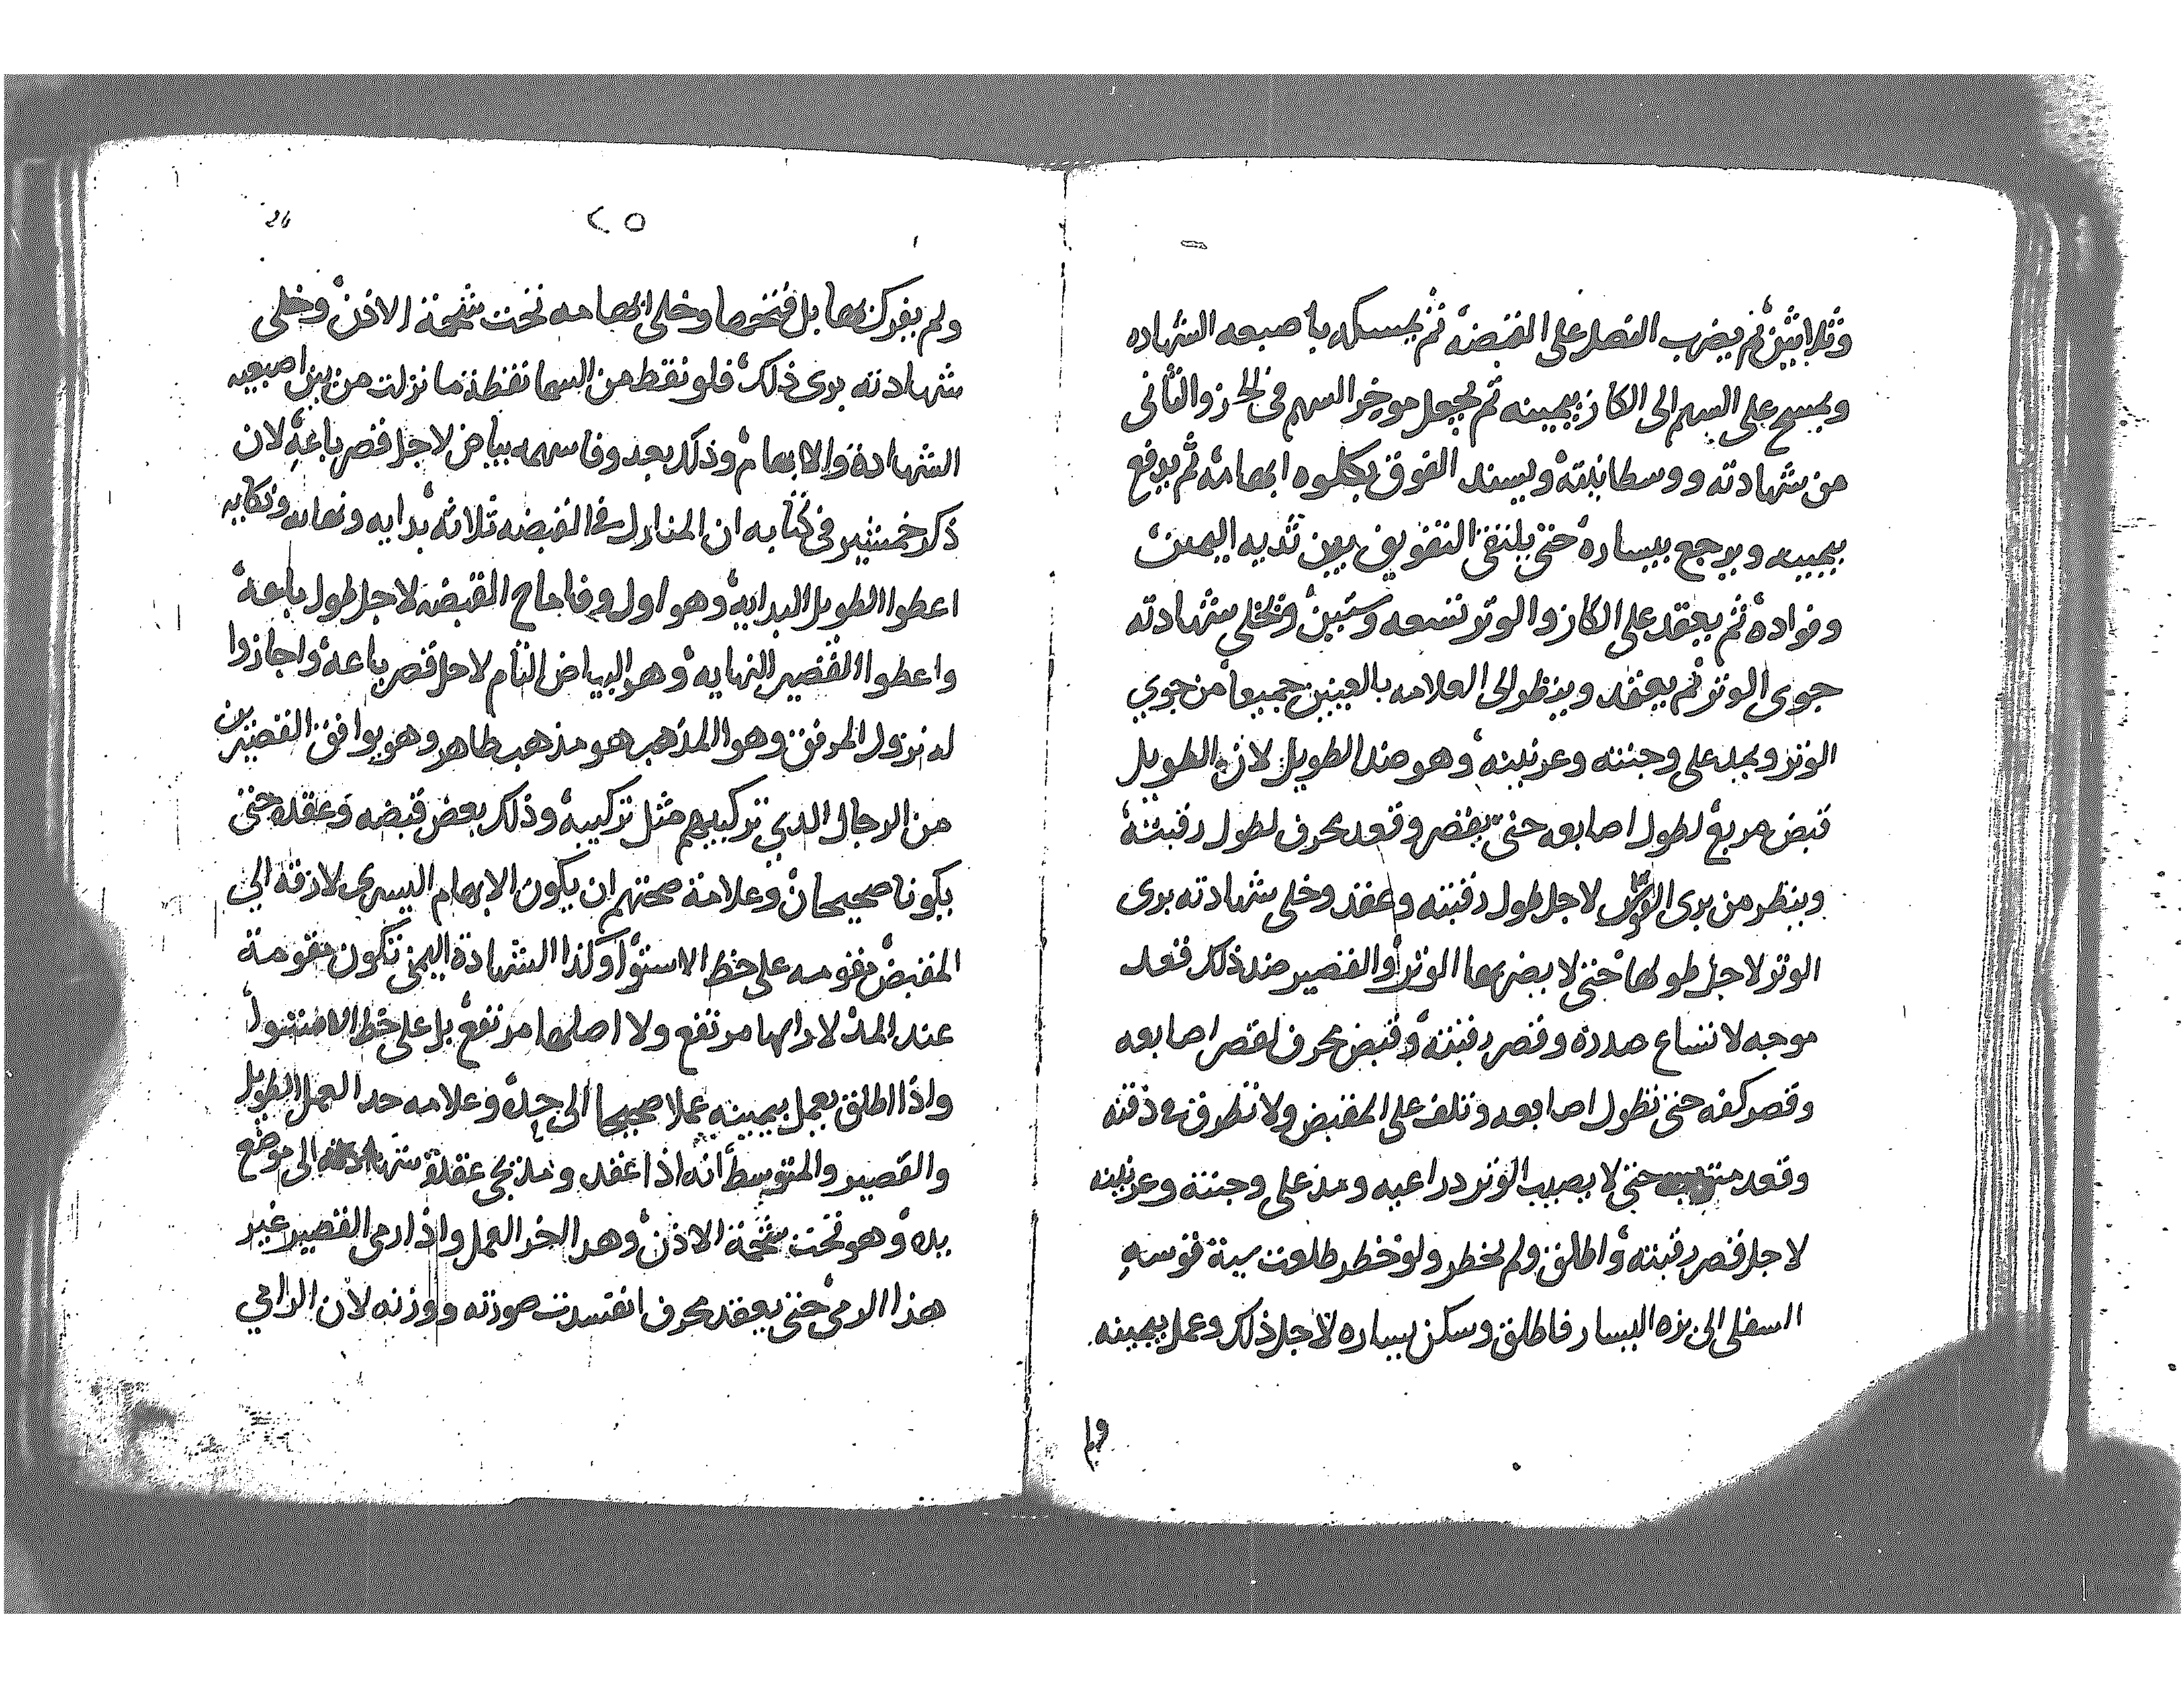 وثلاثين ثم يضرب النصل على القبضه ثم يمسكه باصبعه الشهاده
ويمسح على السهم الى الكاز بيمينه ثم يجعل موخر السهم فى الحز والثانى
من شهادته ووسطانيته ويسند الفوق بكلوه ابهامه ثم يدفع
بيمينه ويرجع بيساره حتى يلتقى التفويق بين ثديه اليمين
وفواده ثم يعقد على الكاز والوتر تسعه وستين وتخلى شهادته
جوى الوتر ثم يعقد وينظر الى العلامه بالعينين جميعا من جوي
الوتر ويمد على وجنته وعرنينه وهو ضد الطويل لان الطويل
قبض مربع لطول اصابعه حتى يقصر وقعد محرف لطول رقبته
وينظر من برى لاجل طول رقبته وعقد وخلى شهادته برى
الوتر لاجل طولها حتى لا يضربها الوتر والقصير ضد ذلك قعد
موجه لاتساع صدره وقصر رقبته وقبض محرف لقصر اصابعه
وقصر كفه حتى تطول اصابعه وتلف على المقبض ولا تطرق ذقنه
وقعد حتى لا يصيب الوتر دراعيه ومد على وجنته وعرنينه
لاجل قصر رقبته واطلق ولم يخطر ولو خطر طلعت سية قوسه
السفلى الى بزه اليسار فاطلق وسكن يساره لاجل ذلك وعمل بيمينه
ولم
24
٢٥
ولم يفرك بها بل فتحها وخلى ابهامه تحت شحمة الاذن وخلى
شهادته برى ذلك فلو نقط من السما نقطة ما نزلت من بين اصبعيه
الشهادة والابهام وذلك بعد وفا سهمه بياض لاجل قصر باعه لان
ذكر فى كتابه ان المنازل فى القبضه ثلاثة بدايه ونهايه ونكايه
اعطوا الطويل البدايه وهو اول وفا القبضه لاجل طول باعه
واعطوا القصير النهايه وهو البياض التام لاجل قصر باعه واجازوا
له نزول المرفق وهو المذهب هو مذهب طاهر وهو يوافق القصيرين
من الرجال الدي تركيبهم مثل تركيبه وذلك بعض قبضه وعقده حتى
يكونا صحيحان وعلامة صحتهم ان يكون الابهام اليسرى لازقة الي
المقبض مقومه على خط الاستوا وكذا الشهادة اليمنى تكون مقومة
عند المد لا راسها مرتفع ولا اصلها مرتفع بل على خط الاستوا
واذا اطلق يعمل بيمينه عملا صحيحا الى حده وعلامه حد العمل الطويل
والقصير والمتوسط انه اذا عقد ومد عقدة شهادته الى موضع
يده وهو تحت شحمة الاذن وهدا اخر العمل واذا رمى القصير غير
هذا الرمى حتى يعقد محرف انفسدت صورته ووزنه لان الرامي